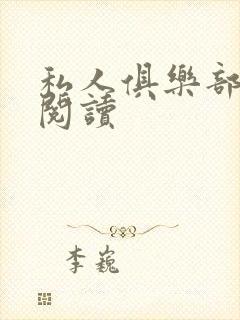 私人俱樂部
閱讀
李巍